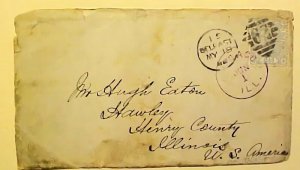 1 S
BELFAST
MY 18
ILL.
Mr Hugh Eaton
Hawley
Henry County
Illinois
U. S. America